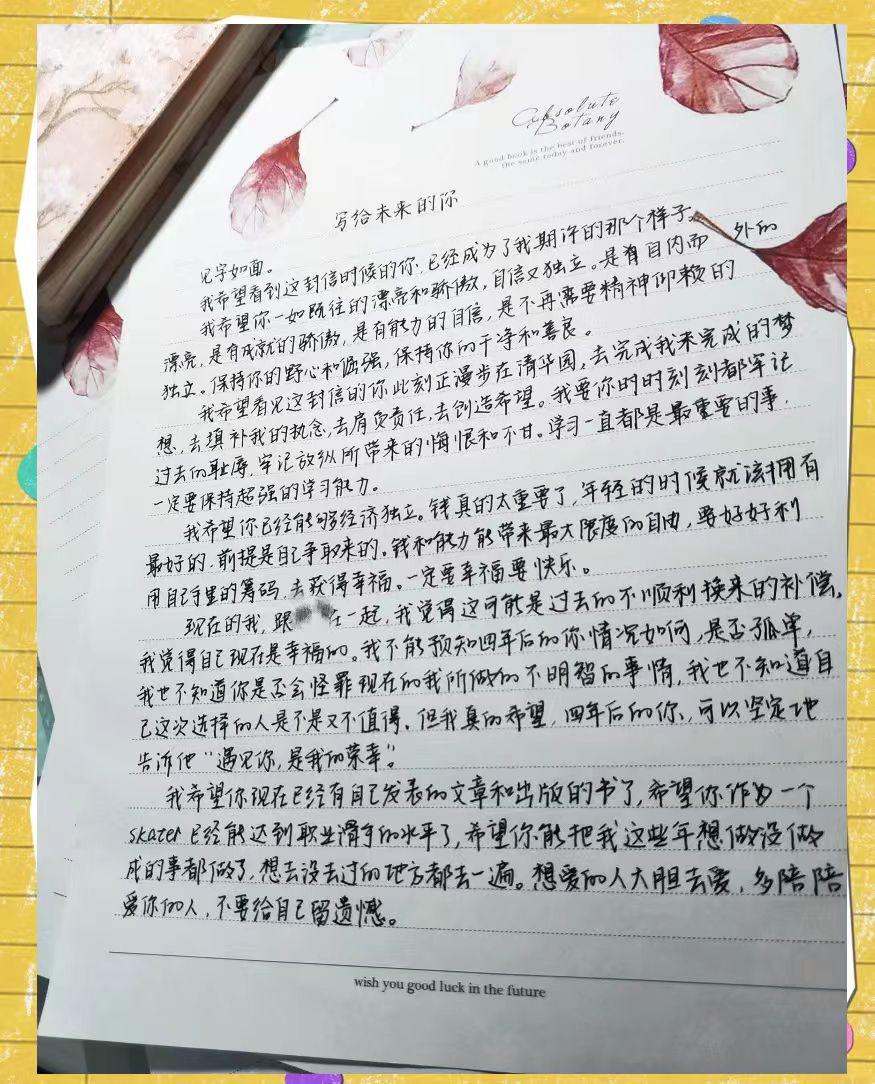 Absolute
Botany
A good book is the best of friends,
the same today and forever.
写给未来的你
见字如面。
我希望看到这封信时候的你,已经成为了我期许的那个样子。
我希望你一如既往的漂亮和骄傲,自信又独立。是有自内而外的
漂亮,是有成就的骄傲,是有能力的自信,是不再需要精神仰赖的
独立。保持你的野心和倔强,保持你的干净和善良。
我希望看见这封信的你此刻正漫步在清华园,去完成我未完成的梦
想,去填补我的执念,去肩负责任,去创造希望。我要你时时刻刻都牢记
过去的耻辱,牢记放纵所带来的悔恨和不甘。学习一直都是最重要的事,
一定要保持超强的学习能力。
我希望你已经能够经济独立。钱真的太重要了,年轻的时候就该拥有
最好的,前提是自己争取来的。钱和能力能带来最大限度的自由,要好好利
用自己手里的筹码,去获得幸福。一定要幸福要快乐。
现在的我,跟 在一起,我觉得这可能是过去的不顺利换来的补偿,
我觉得自己现在是幸福的。我不能预知四年后的你情况如何,是否孤单,
我也不知道你是否会怪罪现在的我所做的不明智的事情,我也不知道自
己这次选择的人是不是又不值得,但我真的希望,四年后的你,可以坚定地
告诉他“遇见你,是我的荣幸”。
我希望你现在已经有自己发表的文章和出版的书了,希望你作为一个
skater已经能达到职业滑手的水平了,希望你能把我这些年想做没做
成的事都做了,想去没去过的地方都去一遍。想爱的人大胆去爱,多陪陪
爱你的人,不要给自己留遗憾。
wish you good luck in the future